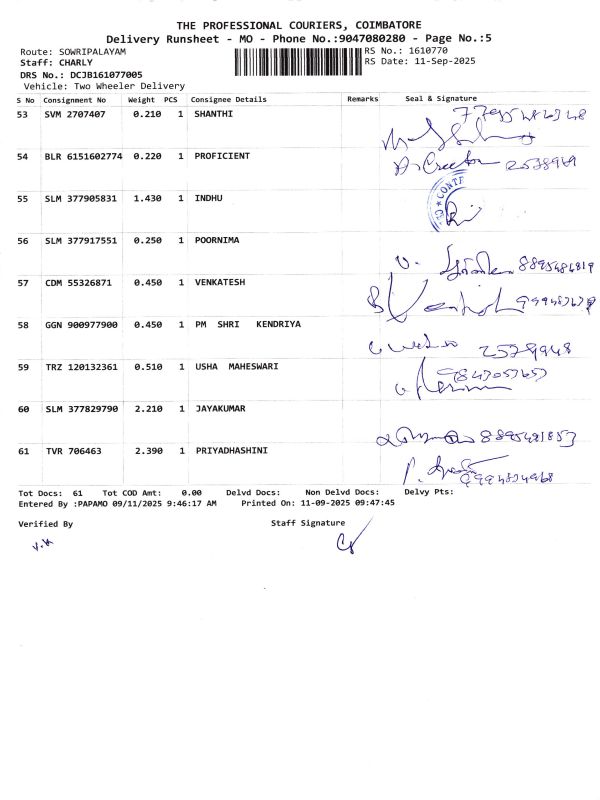 THE PROFESSIONAL COURIERS, COIMBATORE
Delivery Runsheet - MO - Phone No.:9047080280 - Page No.:5
Route: SOWRIPALAYAM RS No.: 1610770
Staff: CHARLY RS Date: 11-Sep-2025
DRS No.: DCJB161077005
Vehicle: Two Wheeler Delivery
S No Consignment No Weight PCS Consignee Details Remarks Seal & Signature
53 SVM 2707407 0.210 1 SHANTHI
54 BLR 6151602774 0.220 1 PROFICIENT
55 SLM 377905831 1.430 1 INDHU
56 SLM 377917551 0.250 1 POORNIMA
57 CDM 55326871 0.450 1 VENKATESH
58 GGN 900977900 0.450 1 PM SHRI KENDRIYA
59 TRZ 120132361 0.510 1 USHA MAHESWARI
60 SLM 377829790 2.210 1 JAYAKUMAR
61 TVR 706463 2.390 1 PRIYADHASHINI
Tot Docs: 61 Tot COD Amt: 0.00 Delvd Docs: Non Delvd Docs: Delvy Pts:
Entered By :PAPAMO 09/11/2025 9:46:17 AM Printed On: 11-09-2025 09:47:45
Verified By Staff Signature